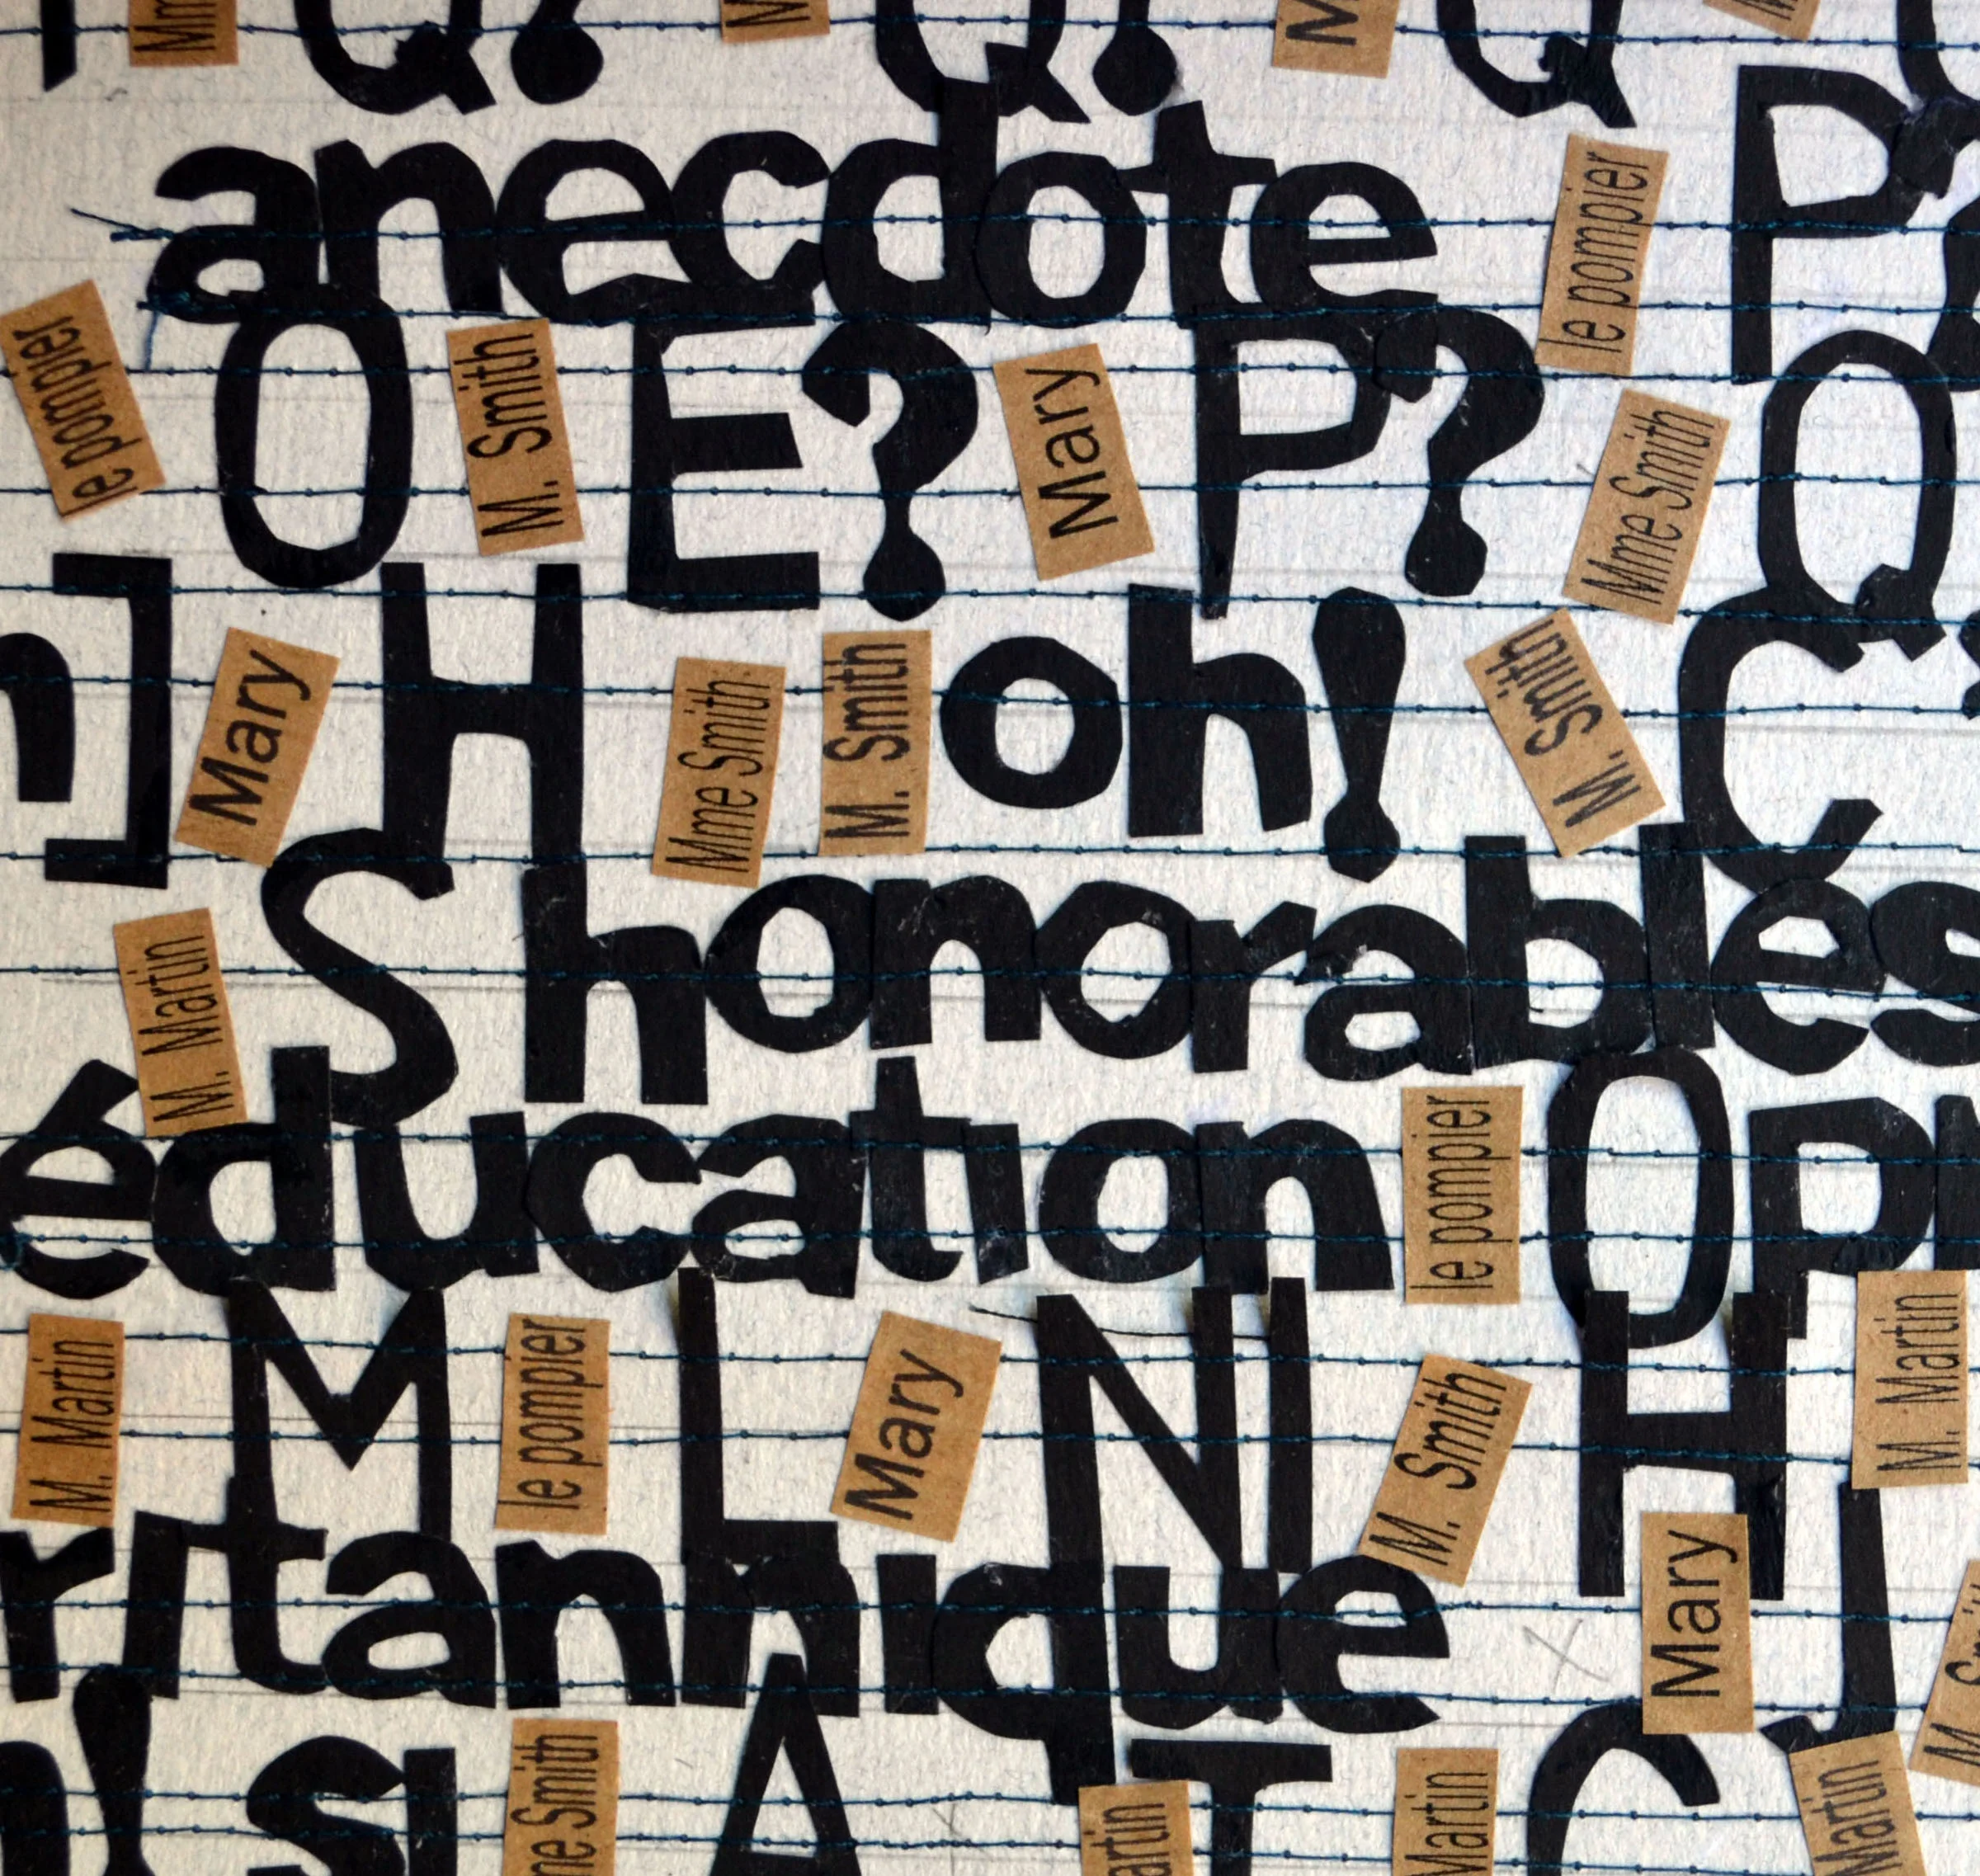 Q? Q? Q
anecdote le pompier P?
le pompier O M. Smith E? Mary P? Mme Smith Q
n] Mary H Mme Smith M. Smith oh! M. Smith C
M. Martin S honorables
éducation le pompier O
M. Martin M le pompier L Mary N I M. Smith H M. Martin
ritannique Mary J
! si Smith A Martin C Martin